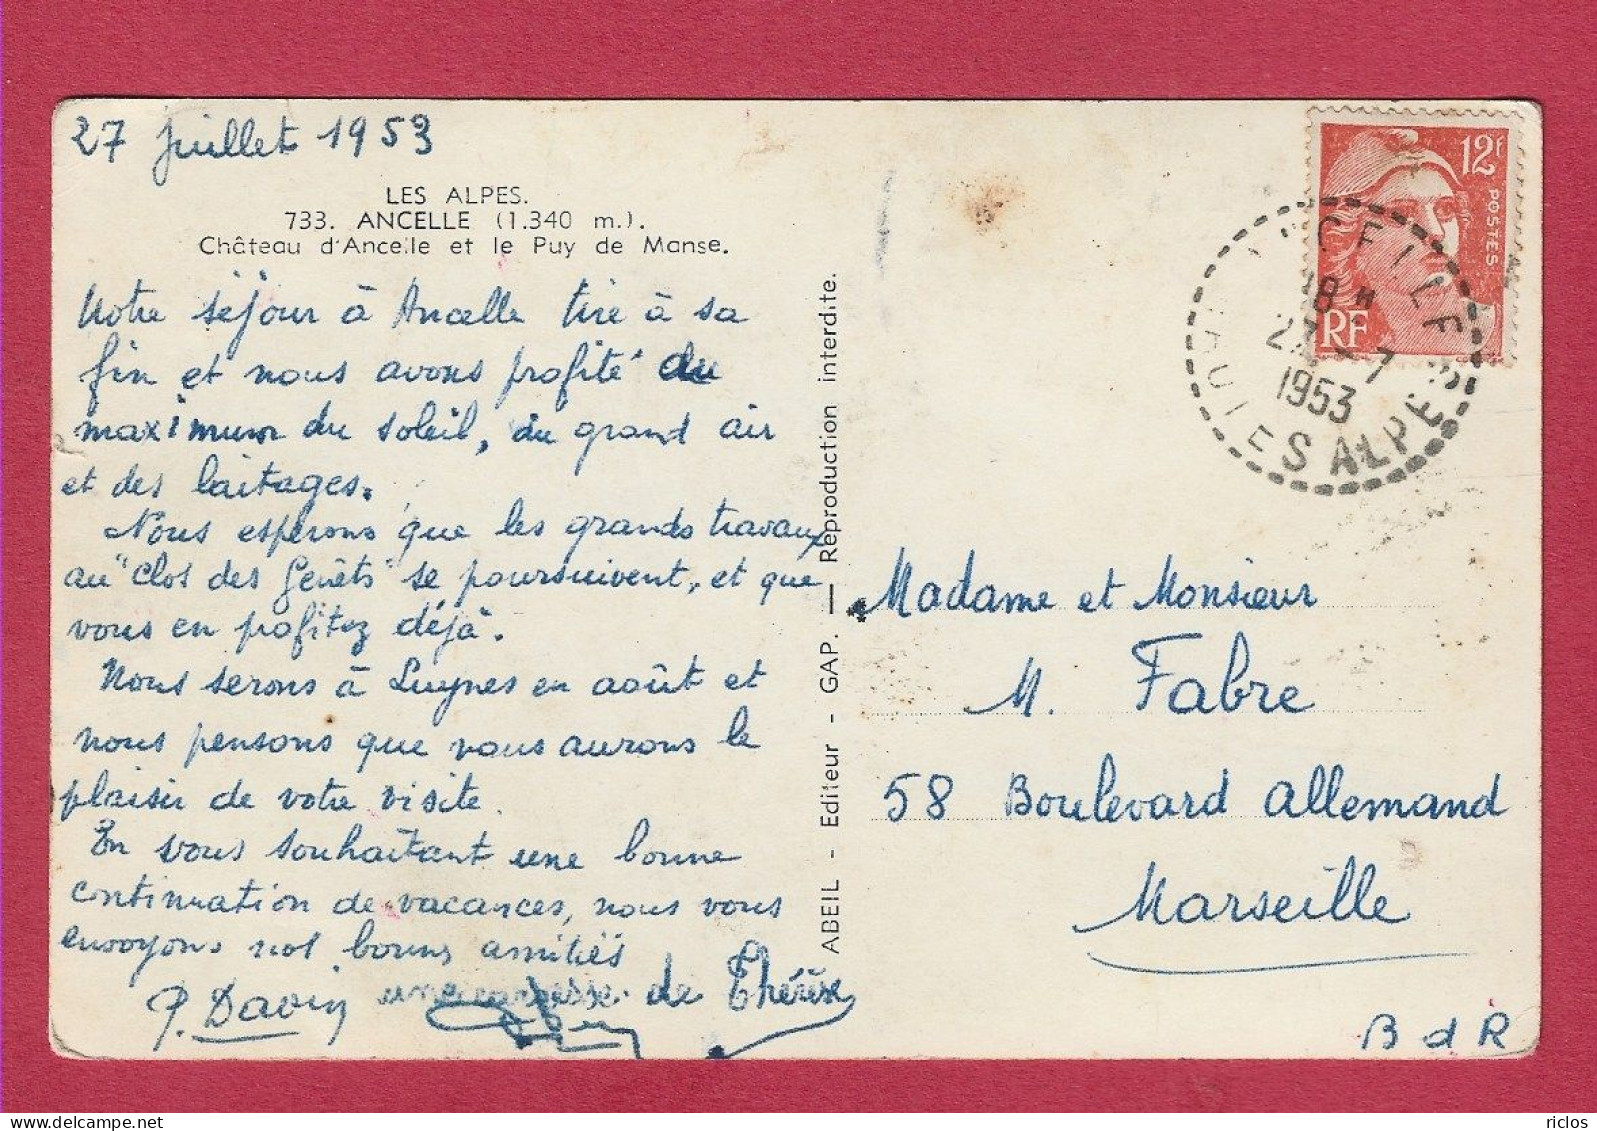 27 Juillet 1953
LES ALPES.
733. ANCELLE (1.340 m.).
Château d'Ancelle et le Puy de Manse.
Notre séjour à Ancelle tire à sa
fin et nous avons profité au
maximum du soleil, du grand air
et des laitages.
Nous espérons que les grands travaux
au "Clos des Genêts" se poursuivent, et que
vous en profitez déjà.
Nous serons à Luynes en août et
nous pensons que nous aurons le
plaisir de votre visite.
En vous souhaitant une bonne
continuation de vacances, nous vous
envoyons nos bonnes amitiés
P. Davin
une caresse de Thérèse
ABEIL - Editeur - GAP. — Reproduction interdite.
12F
POSTES
RF
ANCELLE
18 H
27 - 7
1953
HAUTES ALPES
Madame et Monsieur
M. Fabre
58 Boulevard Allemand
Marseille
B d R
riclos